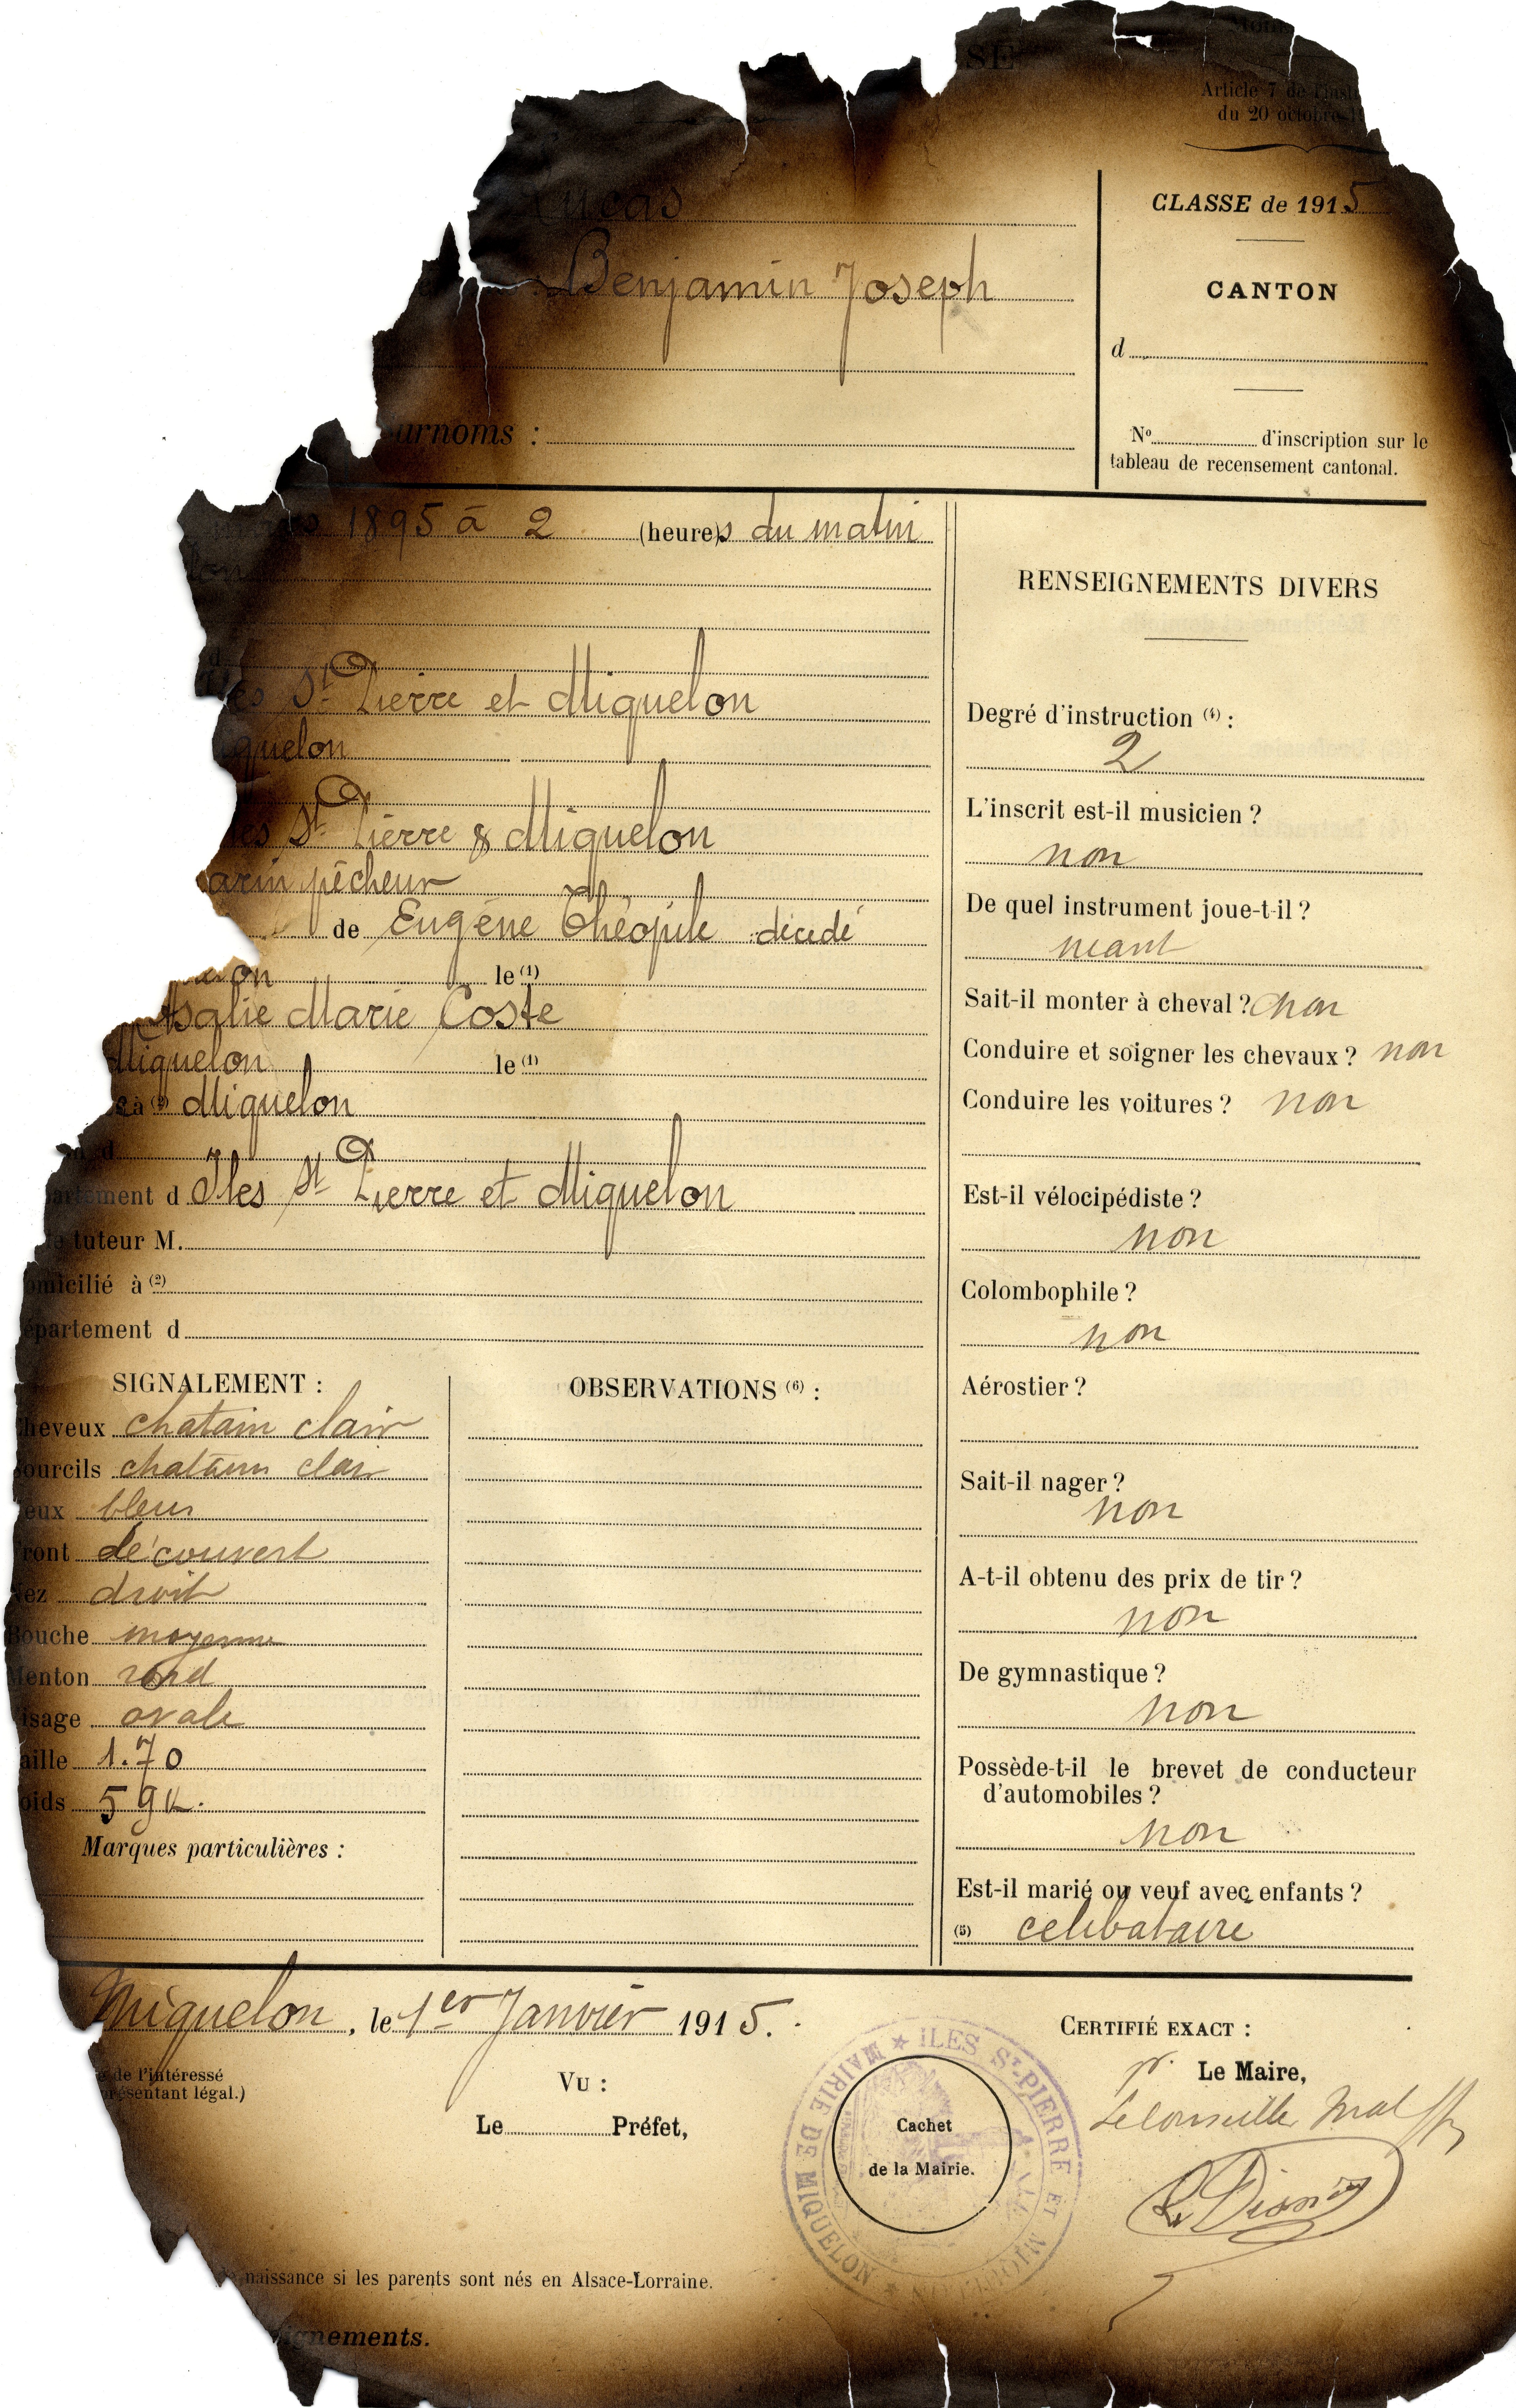 SE
Article 7 de l'inst
du 20 octobre 19
Lucas
Benjamin Joseph
urnoms :
CLASSE de 1915
CANTON
d
N° d'inscription sur le
tableau de recensement cantonal.
1895 à 2 (heure)s du matin
d
les St Pierre et Miquelon
quelon
les St Pierre & Miquelon
arin pêcheur
de Eugène Théophile décédé
on le (1)
Rosalie Marie Coste
Miquelon le (1)
à (2) Miquelon
d
artement d Iles St Pierre et Miquelon
tuteur M.
omicilié à (2)
épartement d
SIGNALEMENT :
heveux chatain clair
ourcils chatain clair
eux bleus
ront découvert
Nez droit
Bouche moyenne
enton rond
isage ovale
aille 1.70
oids 59 k.
Marques particulières :
OBSERVATIONS (6) :
RENSEIGNEMENTS DIVERS
Degré d'instruction (4) :
2
L'inscrit est-il musicien ?
non
De quel instrument joue-t-il ?
néant
Sait-il monter à cheval ? non
Conduire et soigner les chevaux ? non
Conduire les voitures ? non
Est-il vélocipédiste ?
non
Colombophile ?
non
Aérostier ?
Sait-il nager ?
non
A-t-il obtenu des prix de tir ?
non
De gymnastique ?
non
Possède-t-il le brevet de conducteur
d'automobiles ?
non
Est-il marié ou veuf avec enfants ?
(5) celibataire
Miquelon, le 1er Janvier 1915.
de l'intéressé
présentant légal.)
VU :
Le Préfet,
MAIRIE DE MIQUELON ★ ILES ST-PIERRE ET MIQUELON ★
Cachet
de la Mairie.
CERTIFIÉ EXACT :
pr. Le Maire,
naissance si les parents sont nés en Alsace-Lorraine.
gnements.